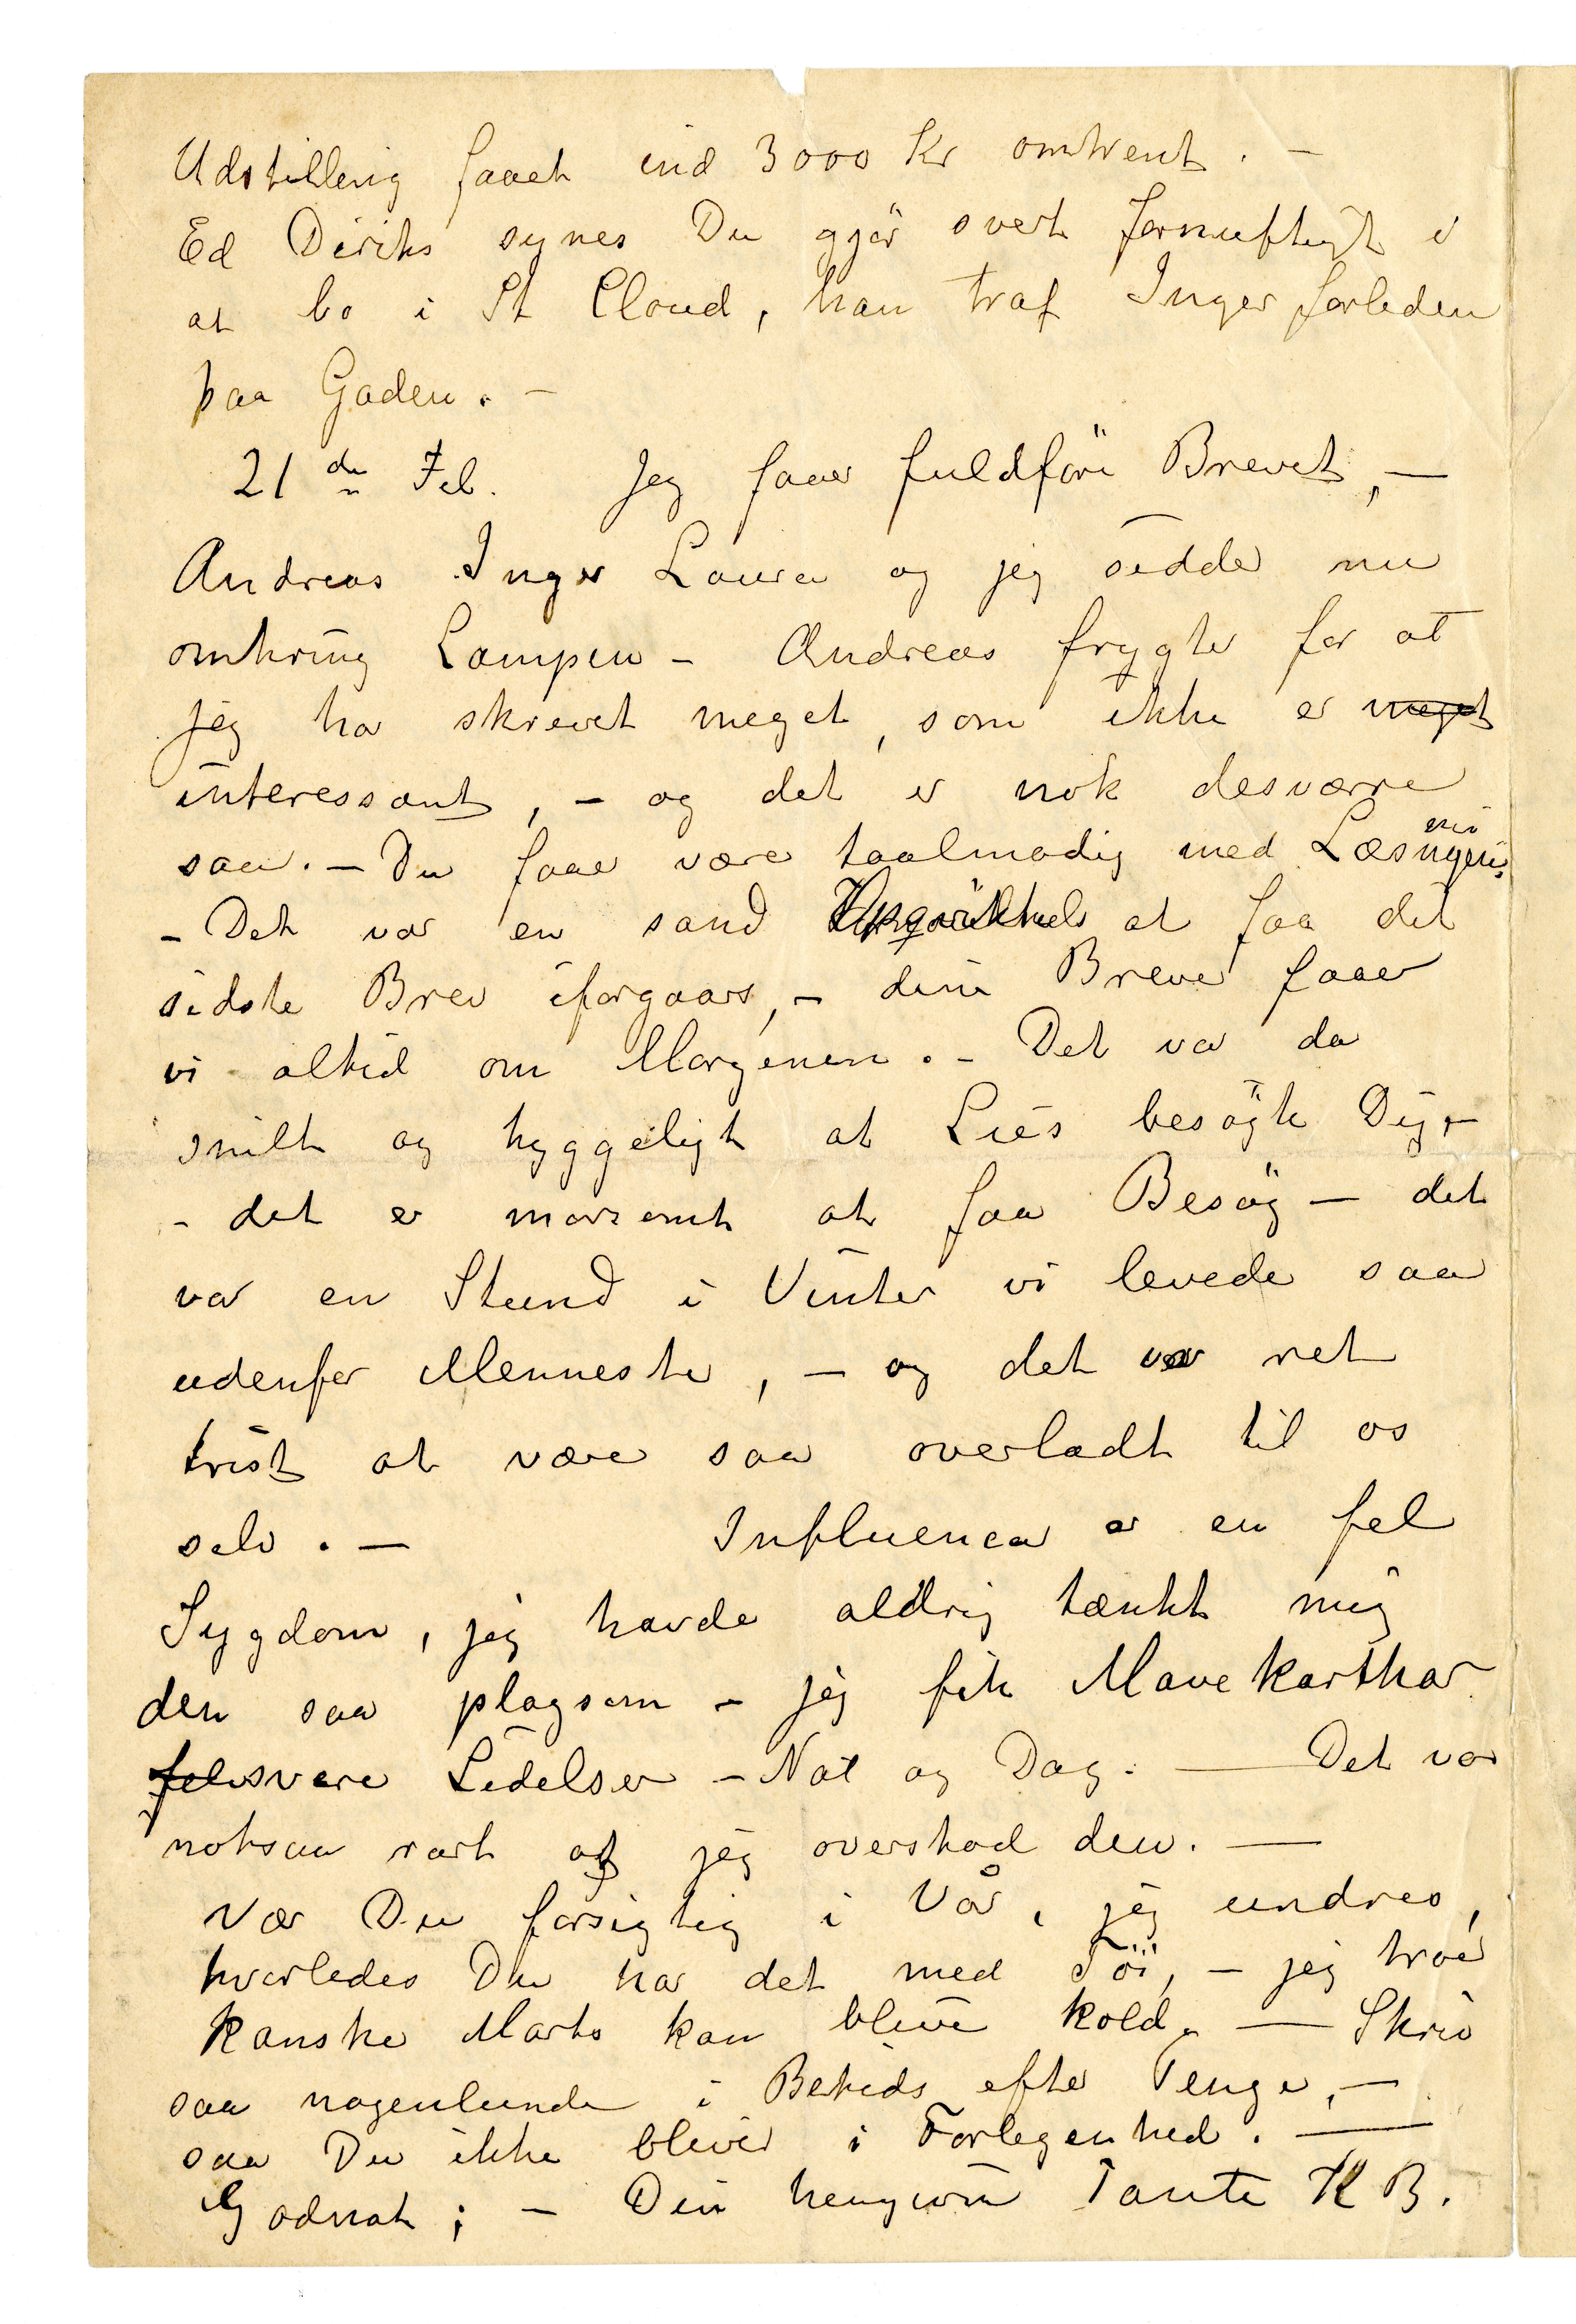 Udstilling faaet ind 3000 Kr omtrent. –
Ed Diriks synes Du gjör svert fornuftigt i
at bo i St Cloud, han traf Inger forleden
paa Gaden. –
21 de Feb. Jeg faar fuldföre Brevet, –
Andreas Inger Laura og jeg sidder nu
omkring Lampen – Andreas frygter for at
jeg har skrevet meget, som ikke er meget
interessant, – og det er nok desværre
saa. – Du faar være taalmodig med Læsningen.
– Det var en sand at faa det
sidste Brev iforgaars, – dine Breve faar
vi altid om Morgenen. – Det var da
snilt og hyggeligt at Lies besögte Dig, –
– det er morsomt at faa Besög – det
var en Stund i Vinter vi levede saa
udenfor Mennesker, – og det var ret
trist at være saa overladt til os
selv. – Influenca er en fel
Sygdom, jeg havde aldrig tænkt mig
den saa plagsom – jeg fik Mavekarthar
fele svere Lidelser – Nat og Dag. – Det var
noksaa rart at jeg overstod den. –
Vær Du forsigtig i Vår, jeg undres,
hvorledes Du har det med Töi, – jeg troer
kanske Marts kan blive kold. – Skriv
saa nogenlunde i Betids efter Penge, –
saa Du ikke bliver i Forlegenhed. –
Godnat; – Din hengivne Tante K B.